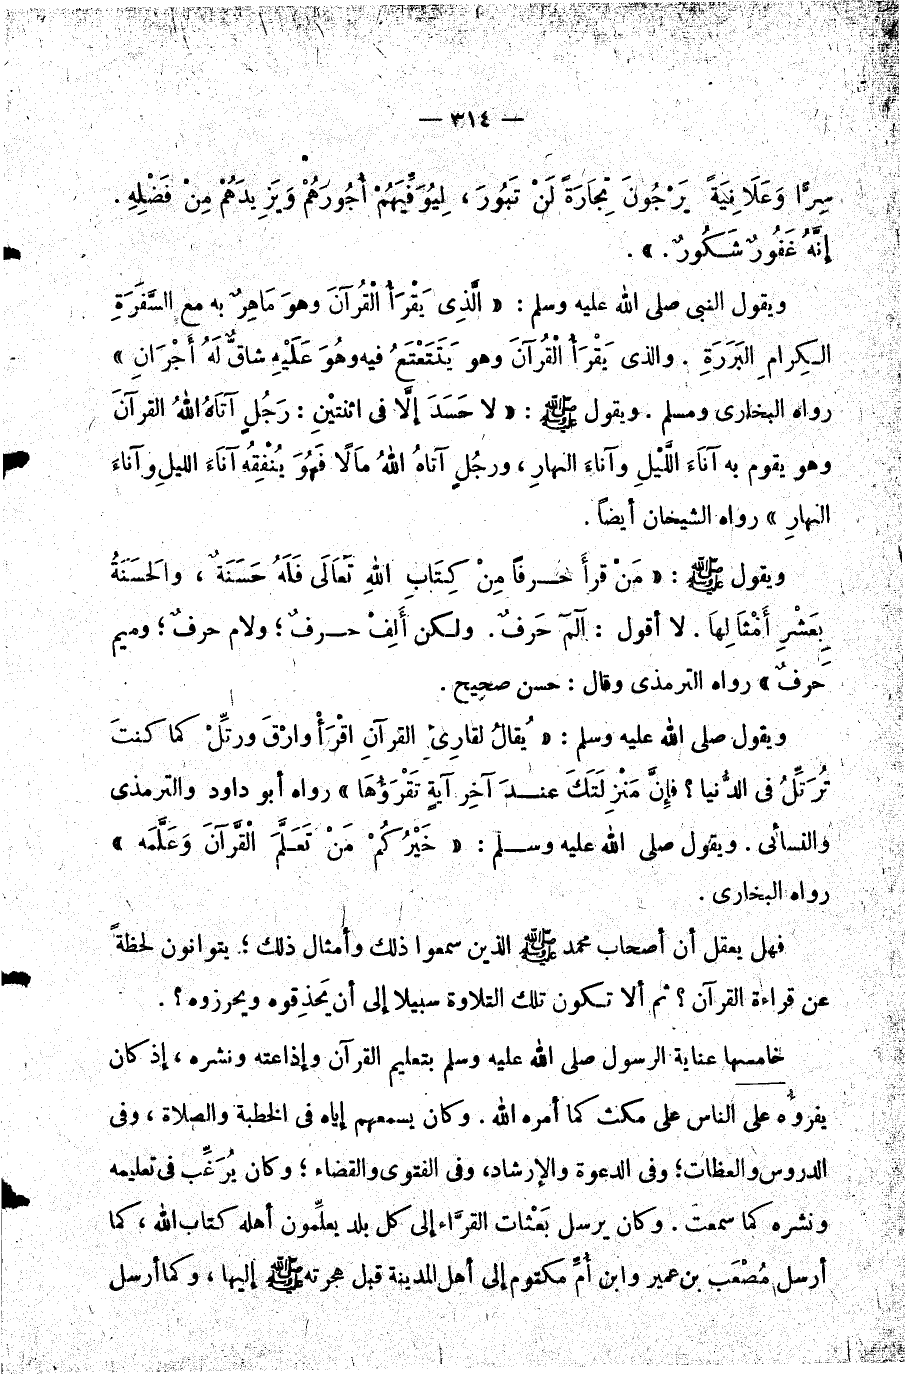 — ٣١٤ —
سِرًّا وَعَلَانِيَةً يَرْجُونَ تِجَارَةً لَنْ تَبُورَ ، لِيُوَفِّيَهُمْ أُجُورَهُمْ وَيَزِيدَهُمْ مِنْ فَضْلِهِ .
إِنَّهُ غَفُورٌ شَكُورٌ . » .
ويقول النبى صلى الله عليه وسلم : « الَّذِى يَقْرَأُ الْقُرآنَ وهوَ مَاهِرٌ به مع السَّفَرَةِ
الكِرامِ البَرَرَةِ . والذى يَقْرَأُ الْقُرآنَ وهو يَتَتَعْتَعُ فيه وهُوَ عَلَيْهِ شاقٌّ لَهُ أَجْرَانِ »
رواه البخارى ومسلم . ويقول ﷺ : « لا حَسَدَ إلَّا فى اثنتَيْنِ : رَجُلٍ آتَاهُ اللهُ القرآنَ
وهو يقوم به آنَاءَ اللَّيْلِ وآناءَ النهارِ ، ورجُلٍ آتاهُ اللهُ مالًا فَهُوَ يُنْفِقُهُ آنَاءَ الليلِ وآناءَ
النهارِ » رواه الشيخان أيضاً .
ويقول ﷺ : « مَنْ قرأَ حرفاً مِنْ كِتَابِ اللهِ تَعَالَى فَلَهُ حَسَنَةٌ ، والحَسَنَةُ
بِعَشْرِ أَمْثَالِهَا . لا أقول : آلمّ حَرفٌ . ولكن أَلِفْ حرفٌ ؛ ولام حرفٌ ؛ وميم
حَرفٌ » رواه الترمذى وقال : حسن صحيح .
ويقول صلى الله عليه وسلم : « يُقالُ لقارِئ القرآنِ اقْرَأْ وارْقَ ورتِّلْ كما كنتَ
تُرَتِّلُ فى الدُّنيا ؟ فإِنَّ مَنْزِلَتَكَ عندَ آخِرِ آيَةٍ تَقْرَؤُهَا » رواه أبو داود والترمذى
والنسائى . ويقول صلى الله عليه وسلم : « خَيْرُكُمْ مَنْ تَعَلَّمَ الْقُرآنَ وَعَلَّمَه »
رواه البخارى .
فهل يعقل أن أصحاب محمد ﷺ الذين سمعوا ذلك وأمثال ذلك ؛ يتوانون لحظةً
عن قراءة القرآن ؟ ثم ألا تكون تلك التلاوة سبيلا إلى أن يَحذِقوه ويحرزوه ؟ .
خامسها عناية الرسول صلى الله عليه وسلم بتعليم القرآن وإذاعته ونشره ، إذ كان
يقرؤه على الناس على مكث كما أمره الله . وكان يسمعهم إياه فى الخطبة والصلاة ، وفى
الدروس والعظات ؛ وفى الدعوة والإرشاد، وفى الفتوى والقضاء ؛ وكان يُرَغِّب فى تعليمه
ونشره كما سمعت . وكان يرسل بَعْثات القرَّاء إلى كل بلد يعلِّمون أهله كتاب الله ، كما
أرسل مُصْعَب بن عمير وابن أُمِّ مكتوم إلى أهل المدينة قبل هجرته ﷺ إليها ، وكما أرسل